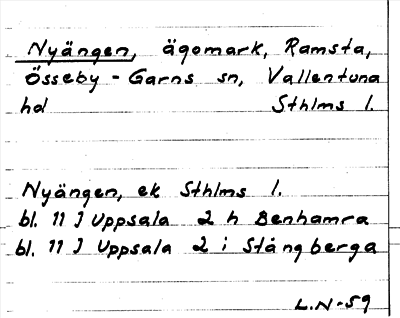 Nyängen, ägomark, Ramsta,
Össeby-Garns sn, Vallentuna
hd Sthlms l.
Nyängen, ek Sthlms l.
bl. 11 J Uppsala 2 h Benhamra
bl. 11 J Uppsala 2 i Stångberga
L.N-59